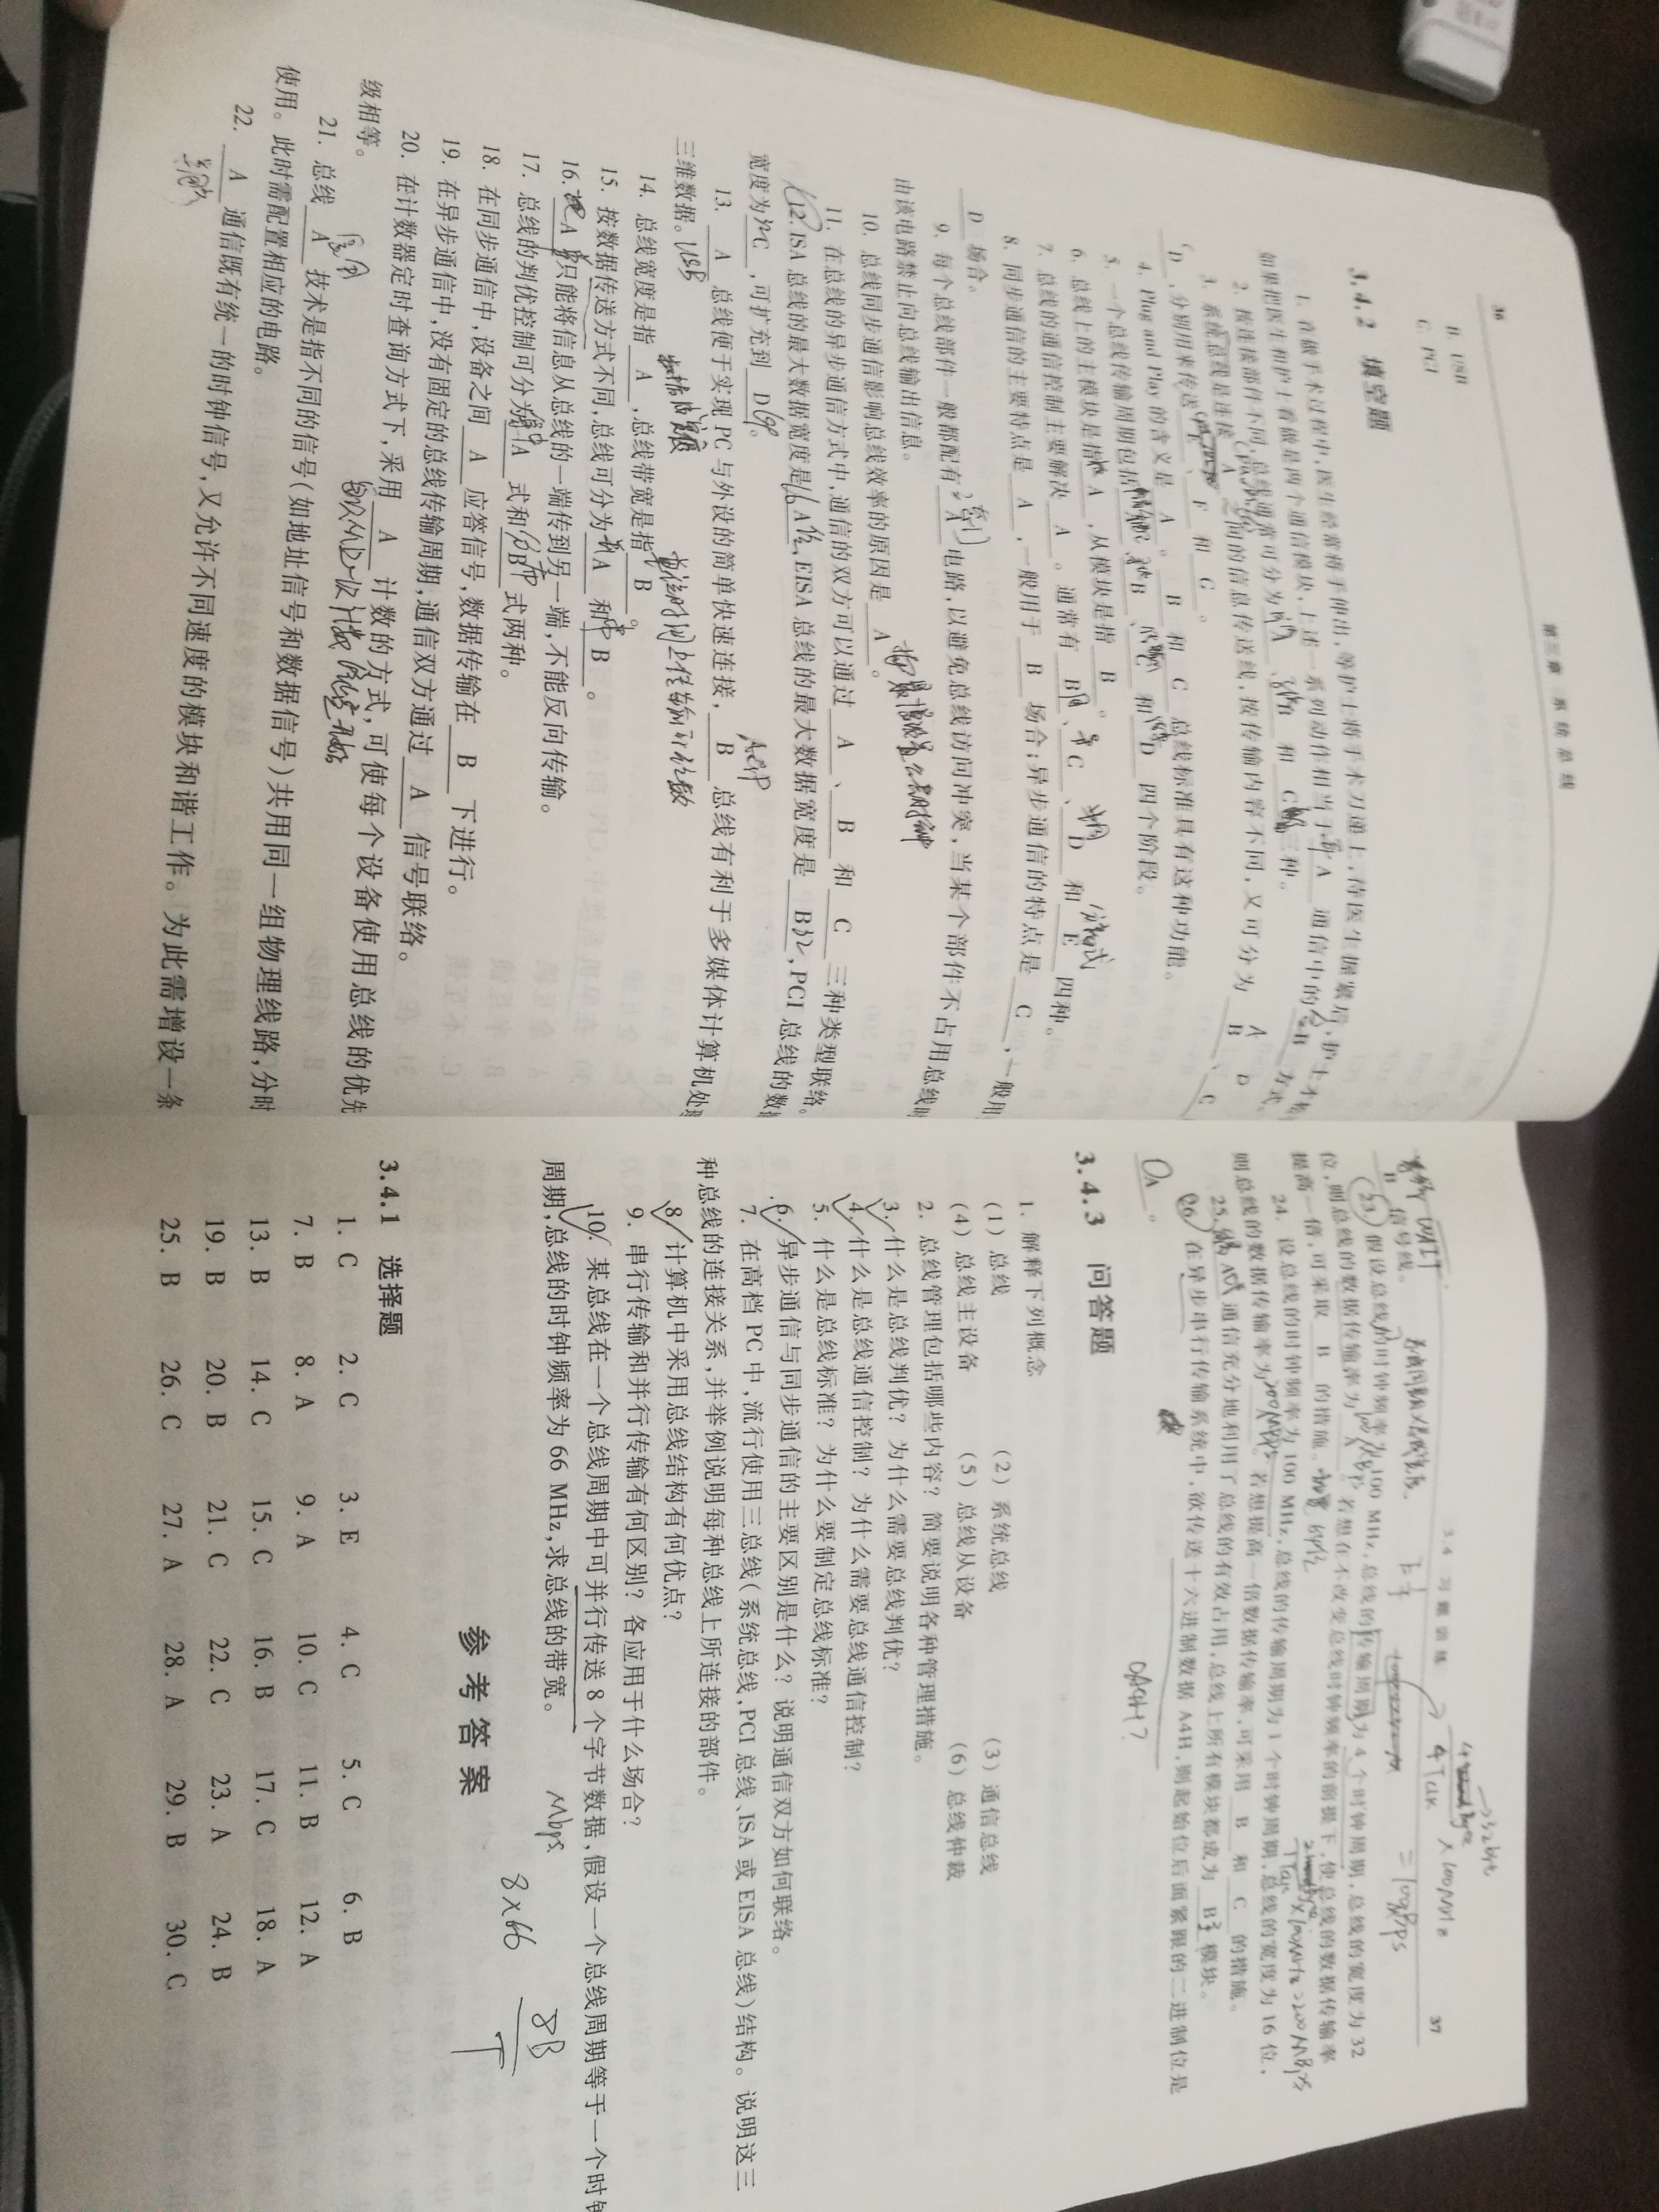 36
第三章 系统总线
B. USB
C. PCI
3.4.2 填空题
1. 在做手术过程中,医生经常将手伸出,等护士将手术刀递上,待医生握紧后,护士才松
如果把医生和护士看做是两个通信模块,上述一系列动作相当于 A 通信中的 B 方式。
2. 按连接部件不同,总线通常可分为 A 、 B 和 C 三种。
3. 系统总线是连接 A 之间的信息传送线,按传输内容不同,又可分为 B 、 C
D ,分别用来传送 E 、 F 和 G 。
4. Plug and Play 的含义是 A 。 B 和 C 总线标准具有这种功能。
5. 一个总线传输周期包括 A 、 B 、 C 和 D 四个阶段。
6. 总线上的主模块是指 A ,从模块是指 B 。
7. 总线的通信控制主要解决 A 。通常有 B 、 C 、 D 和 E 四种。
8. 同步通信的主要特点是 A ,一般用于 B 场合;异步通信的特点是 C ,一般用
D 场合。
9. 每个总线部件一般都配有 A 电路,以避免总线访问冲突,当某个部件不占用总线时
由该电路禁止向总线输出信息。
10. 总线同步通信影响总线效率的原因是 A 。
11. 在总线的异步通信方式中,通信的双方可以通过 A 、 B 和 C 三种类型联络。
12. ISA 总线的最大数据宽度是 A ,EISA 总线的最大数据宽度是 B ,PCI 总线的数据
宽度为 C ,可扩充到 D 。
13. A 总线便于实现 PC 与外设的简单快速连接, B 总线有利于多媒体计算机处理
三维数据。 USB
AGP
14. 总线宽度是指 A ,总线带宽是指 B 。
15. 按数据传送方式不同,总线可分为 A 和 B 。
16. A 只能将信息从总线的一端传到另一端,不能反向传输。
17. 总线的判优控制可分为 A 式和 B 式两种。
18. 在同步通信中,设备之间 A 应答信号,数据传输在 B 下进行。
19. 在异步通信中,没有固定的总线传输周期,通信双方通过 A 信号联络。
20. 在计数器定时查询方式下,采用 A 计数的方式,可使每个设备使用总线的优先
级相等。
21. 总线 A 技术是指不同的信号(如地址信号和数据信号)共用同一组物理线路,分时
使用。此时需配置相应的电路。
22. A 通信既有统一的时钟信号,又允许不同速度的模块和谐工作。为此需增设一条
3.4 习题训练
37
B 信号线。
23. 假设总线的时钟频率为 100 MHz,总线的传输周期为 4 个时钟周期,总线的宽度为 32
位,则总线的数据传输率为 A 。若想在不改变总线时钟频率的前提下,使总线的数据传输率
提高一倍,可采取 B 的措施。
24. 设总线的时钟频率为 100 MHz,总线的传输周期为 1 个时钟周期,总线的宽度为 16 位,
则总线的数据传输率为 A 。若想提高一倍数据传输率,可采用 B 和 C 的措施。
25. A 通信充分地利用了总线的有效占用,总线上所有模块都成为 B 模块。
26. 在异步串行传输系统中,欲传送十六进制数据 A4H,则起始位后面紧跟的二进制位是
A 。
3.4.3 问答题
1. 解释下列概念
(1) 总线 (2) 系统总线 (3) 通信总线
(4) 总线主设备 (5) 总线从设备 (6) 总线仲裁
2. 总线管理包括哪些内容? 简要说明各种管理措施。
3. 什么是总线判优? 为什么需要总线判优?
4. 什么是总线通信控制? 为什么需要总线通信控制?
5. 什么是总线标准? 为什么要制定总线标准?
6. 异步通信与同步通信的主要区别是什么? 说明通信双方如何联络。
7. 在高档 PC 中,流行使用三总线(系统总线,PCI 总线、ISA 或 EISA 总线)结构。说明这三
种总线的连接关系,并举例说明每种总线上所连接的部件。
8. 计算机中采用总线结构有何优点?
9. 串行传输和并行传输有何区别? 各应用于什么场合?
10. 某总线在一个总线周期中可并行传送 8 个字节数据,假设一个总线周期等于一个时钟
周期,总线的时钟频率为 66 MHz,求总线的带宽。
Mbps
8×66
8B
T
参考答案
3.4.1 选择题
1. C 2. C 3. E 4. C 5. C 6. B
7. B 8. A 9. A 10. C 11. B 12. A
13. B 14. C 15. C 16. B 17. C 18. A
19. B 20. B 21. C 22. C 23. A 24. B
25. B 26. C 27. A 28. A 29. B 30. C